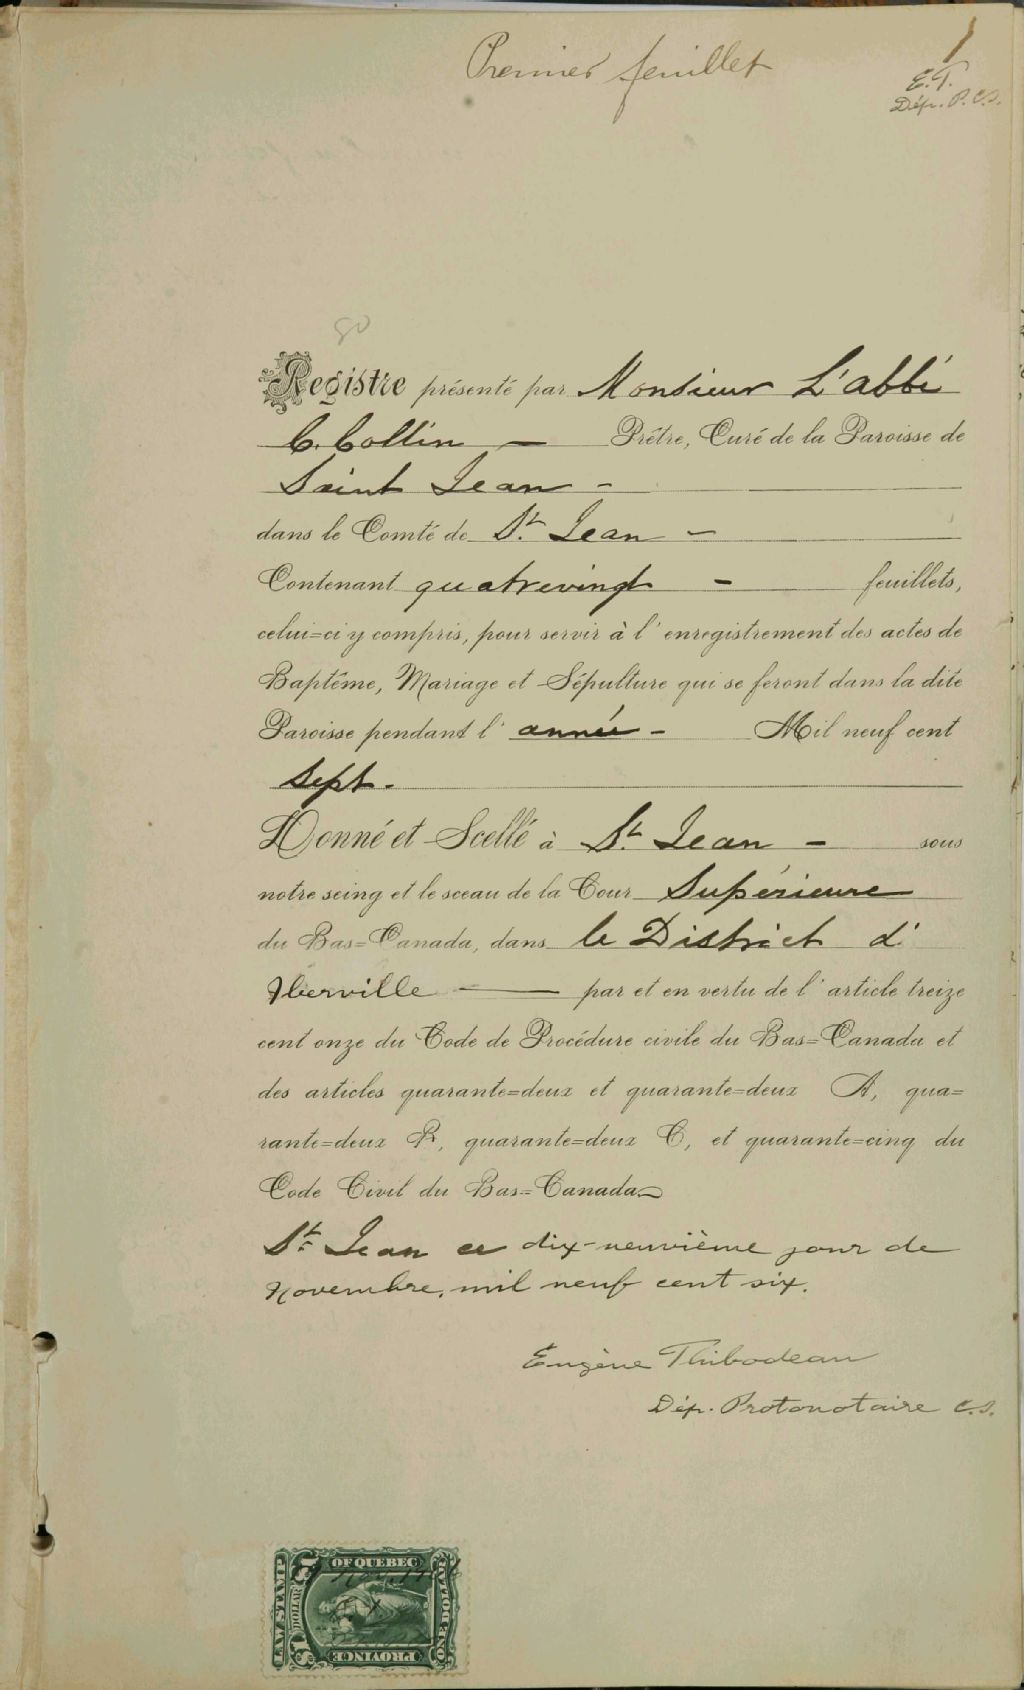 Premier feuillet
1
E.T.
Dép. P.C.S.
80
Registre présenté par Monsieur L'abbé
C. Collin — Prêtre, Curé de la Paroisse de
Saint Jean -
dans le Comté de St. Jean -
Contenant quatrevingt - feuillets,
celui=ci y compris, pour servir à l'enregistrement des actes de
Baptême, Mariage et Sépulture qui se feront dans la dite
Paroisse pendant l'année - Mil neuf cent
Sept.
Donné et Scellé à St. Jean - sous
notre seing et le sceau de la Cour Supérieure
du Bas=Canada, dans le District d'
Iberville — par et en vertu de l'article treize
cent onze du Code de Procédure civile du Bas=Canada et
des articles quarante=deux et quarante=deux A, qua=
rante=deux B, quarante=deux C, et quarante=cinq du
Code Civil du Bas=Canada.
St. Jean ce dix-neuvième jour de
Novembre, mil neuf cent six.
Eugène Thibodeau
Dép. Protonotaire C.S.
LAW STAMP
OF QUEBEC
PROVINCE
ONE DOLLAR
$1
DOLLAR
$1